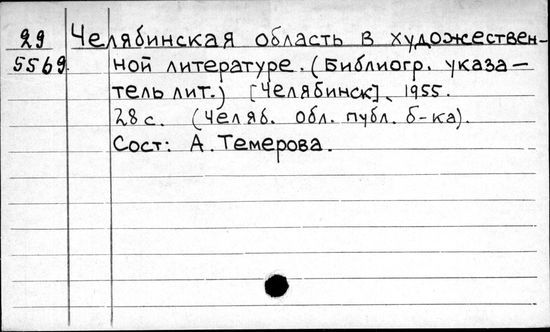 29 Челябинская область в художествен-
5569 ной литературе. (Библиогр. указа-
тель лит.) [Челябинск], 1955.
28 с. (Челяб. обл. публ. б-ка).
Сост: А. Темерова.